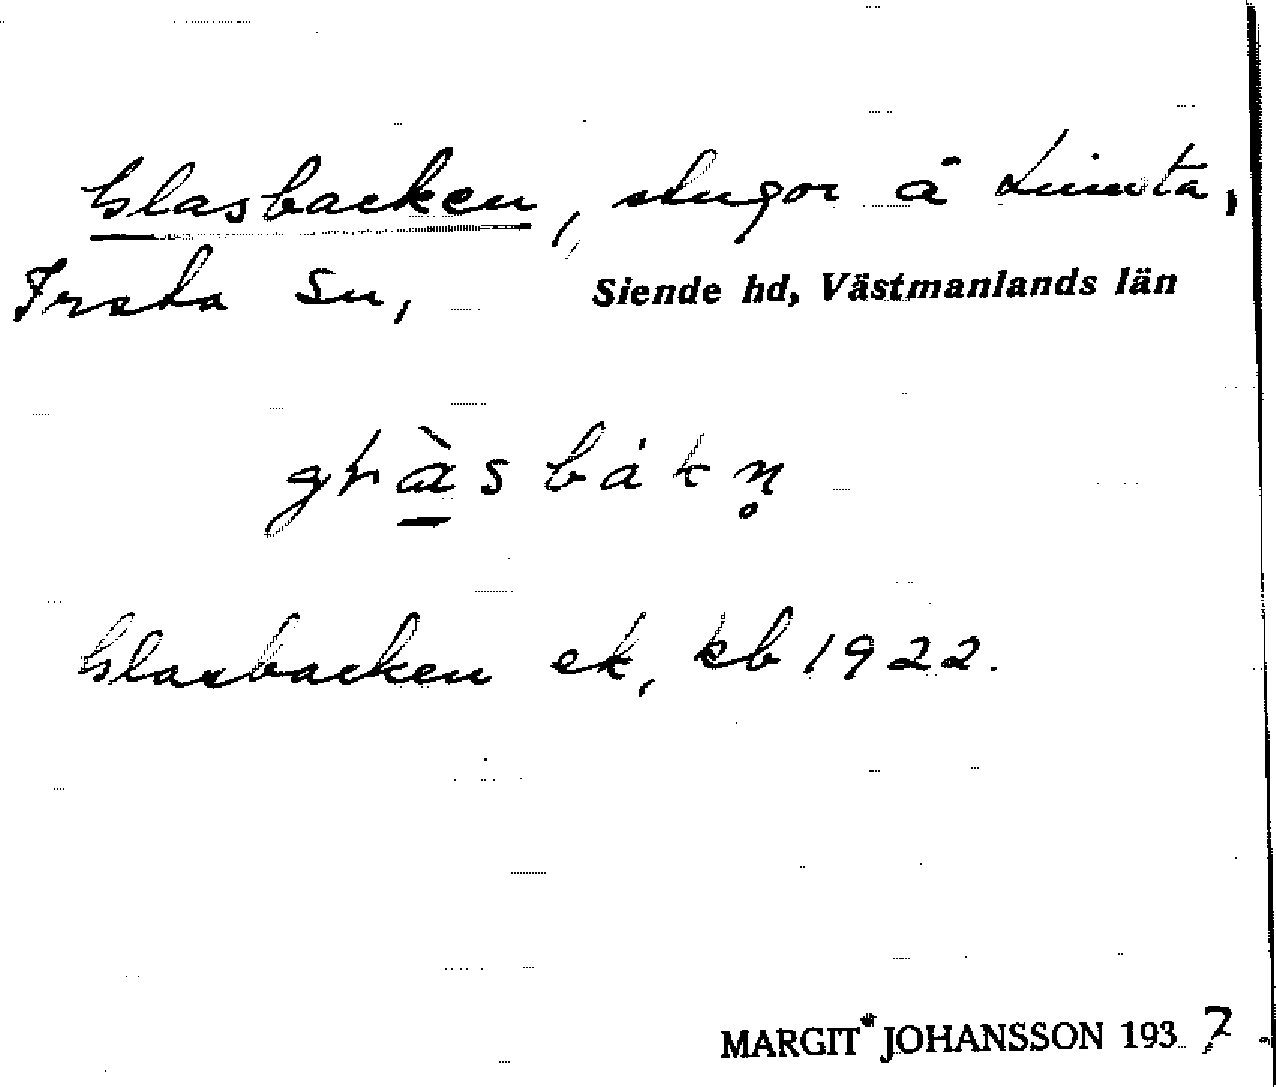 Glasbacken, stugor å Limsta,
Irsta sn, Siende hd, Västmanlands län
Glasbacken ek, kb 1922.
MARGIT JOHANSSON 1937